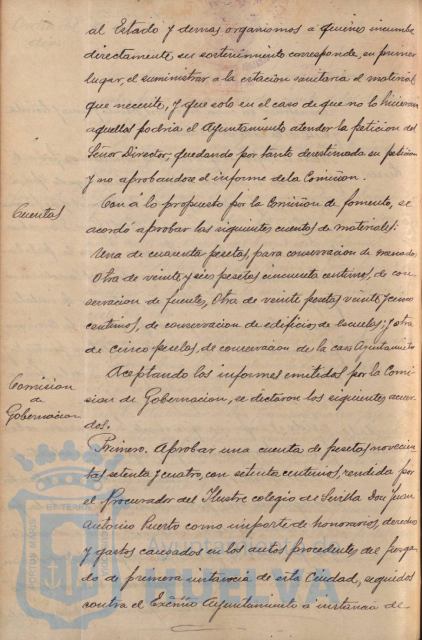 al Estado y demas organismos a quienes incumbe
directamente su sostenimiento corresponde, en primer
lugar, el suministrar a la estacion sanitaria el material
que necesite, y que solo en el caso de que no lo hicieran
aquellos podria el Ayuntamiento atender la peticion del
Señor Director, quedando por tanto desestimada su peticion
y no aprobandose el informe de la Comision.
Cuentas
Con á lo propuesto por la Comision de fomento, se
acordó aprobar las siguientes cuentas de materiales:
Una de cuarenta pesetas, para conservacion de
Otra de veinte y seis pesetas cincuenta centimos, de con-
servacion de fuente, Otra de veinte pesetas veinte y cinco
centimos, de conservacion de edificios de escuelas; y otra
de cinco pesetas, de conservacion de la casa Ayuntamiento
Comision
de
Gobernacion
Aceptando los informes emitidos por la Comi-
sion de Gobernacion, se dictaron los siguientes acuer-
dos.
Primero. Aprobar una cuenta de pesetas novecien-
tas setenta y cuatro, con setenta centimos, rendida por
el Procurador del Ilustre colegio de Sevilla Don Juan
Antonio Puerto como importe de honorarios, derechos
y gastos causados en los autos procedentes del Juzga-
do de primera instancia de esta Ciudad, seguidos
contra el Excmo Ayuntamiento á instancia de
PORTUS MARIS
ET TERRAE
Ayuntamiento de
HUELVA